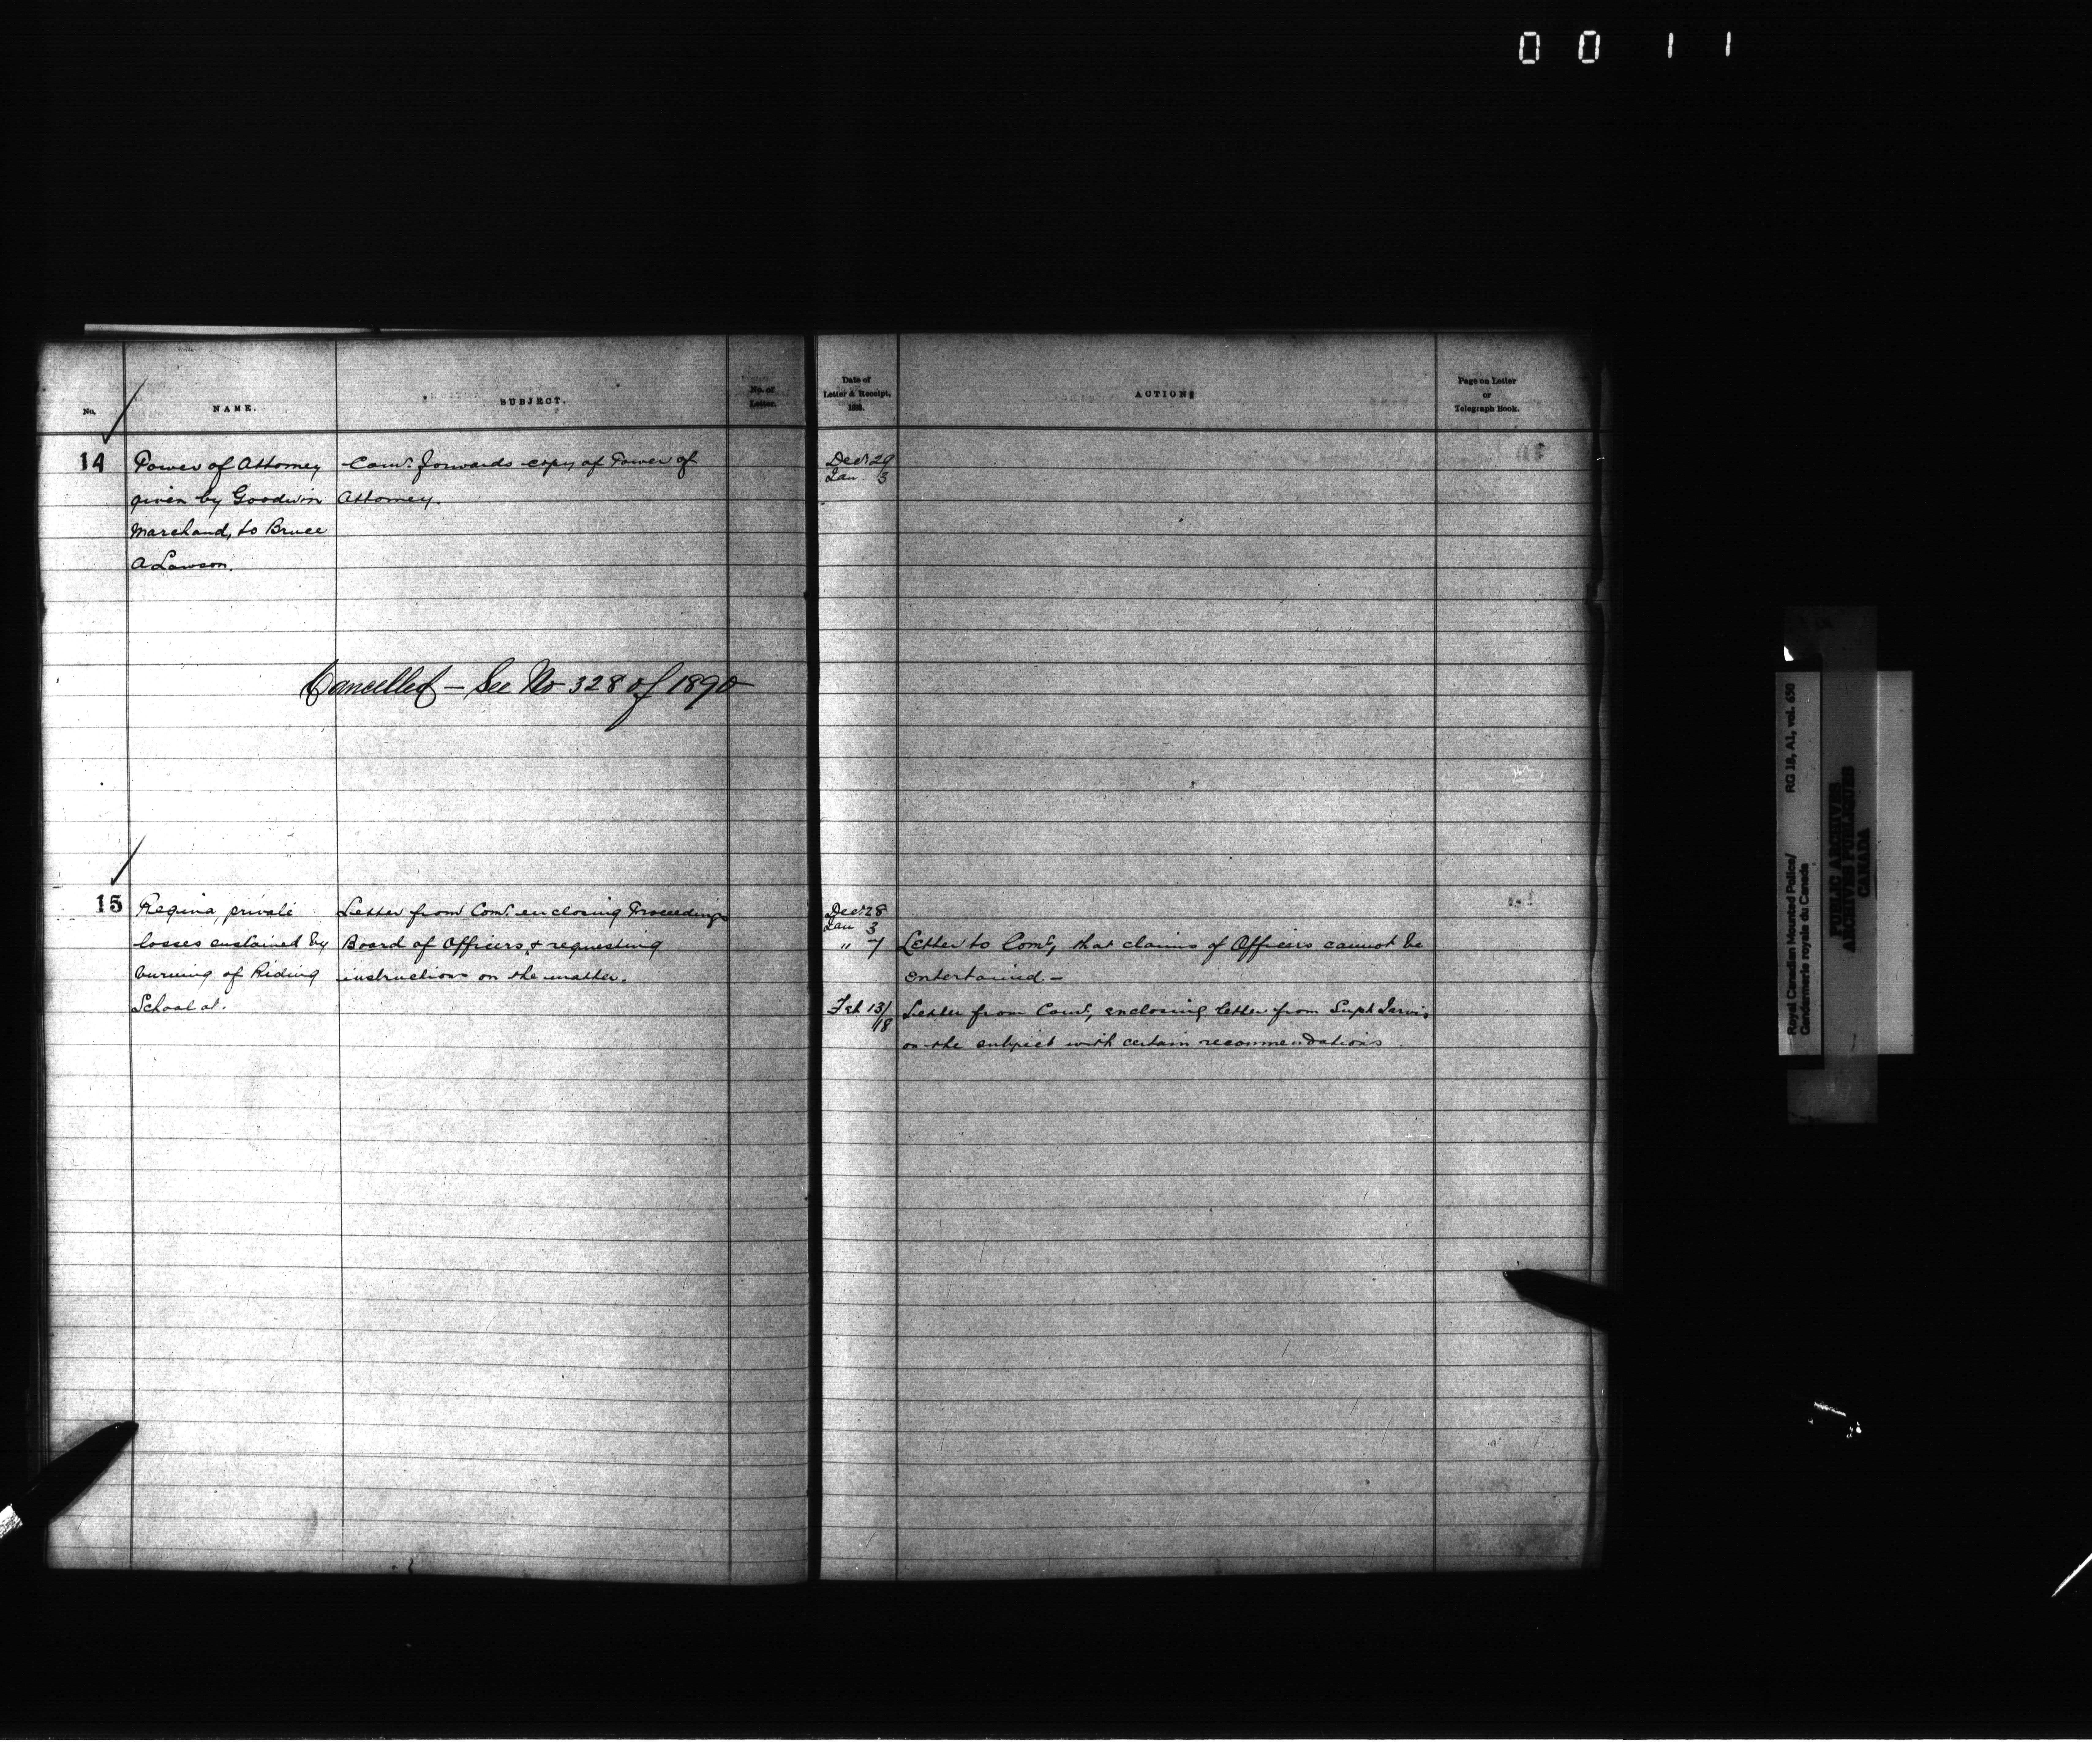 0 0 1 1
No.
NAME.
SUBJECT.
No. of
Letter.
Date of
Letter & Receipt,
188 .
ACTION
Page on Letter
or
Telegraph Book.
14
Power of Attorney
given by Goodwin
Marchand, to Bruce
A Lawson.
Comr. forwards copy of Power of
Attorney.
Decr 29
Jan 3
Cancelled - See No 328 of 1890
15
Regina, private
losses sustained by
burning of Riding
School at.
Letter from Comr. enclosing Proceedings
Board of Officers, & requesting
instructions on the matter.
Decr 28
Jan 3
" 7 Letter to Comr, that claims of Officers cannot be
entertained. -
Feb 13/
18 Letter from Comr, enclosing letter from Supt Jarvis
on the subject with certain recommendations.
Royal Canadian Mounted Police/
Gendarmerie royale du Canada
RG 18, A1, vol. 650
PUBLIC ARCHIVES
ARCHIVES PUBLIQUES
CANADA